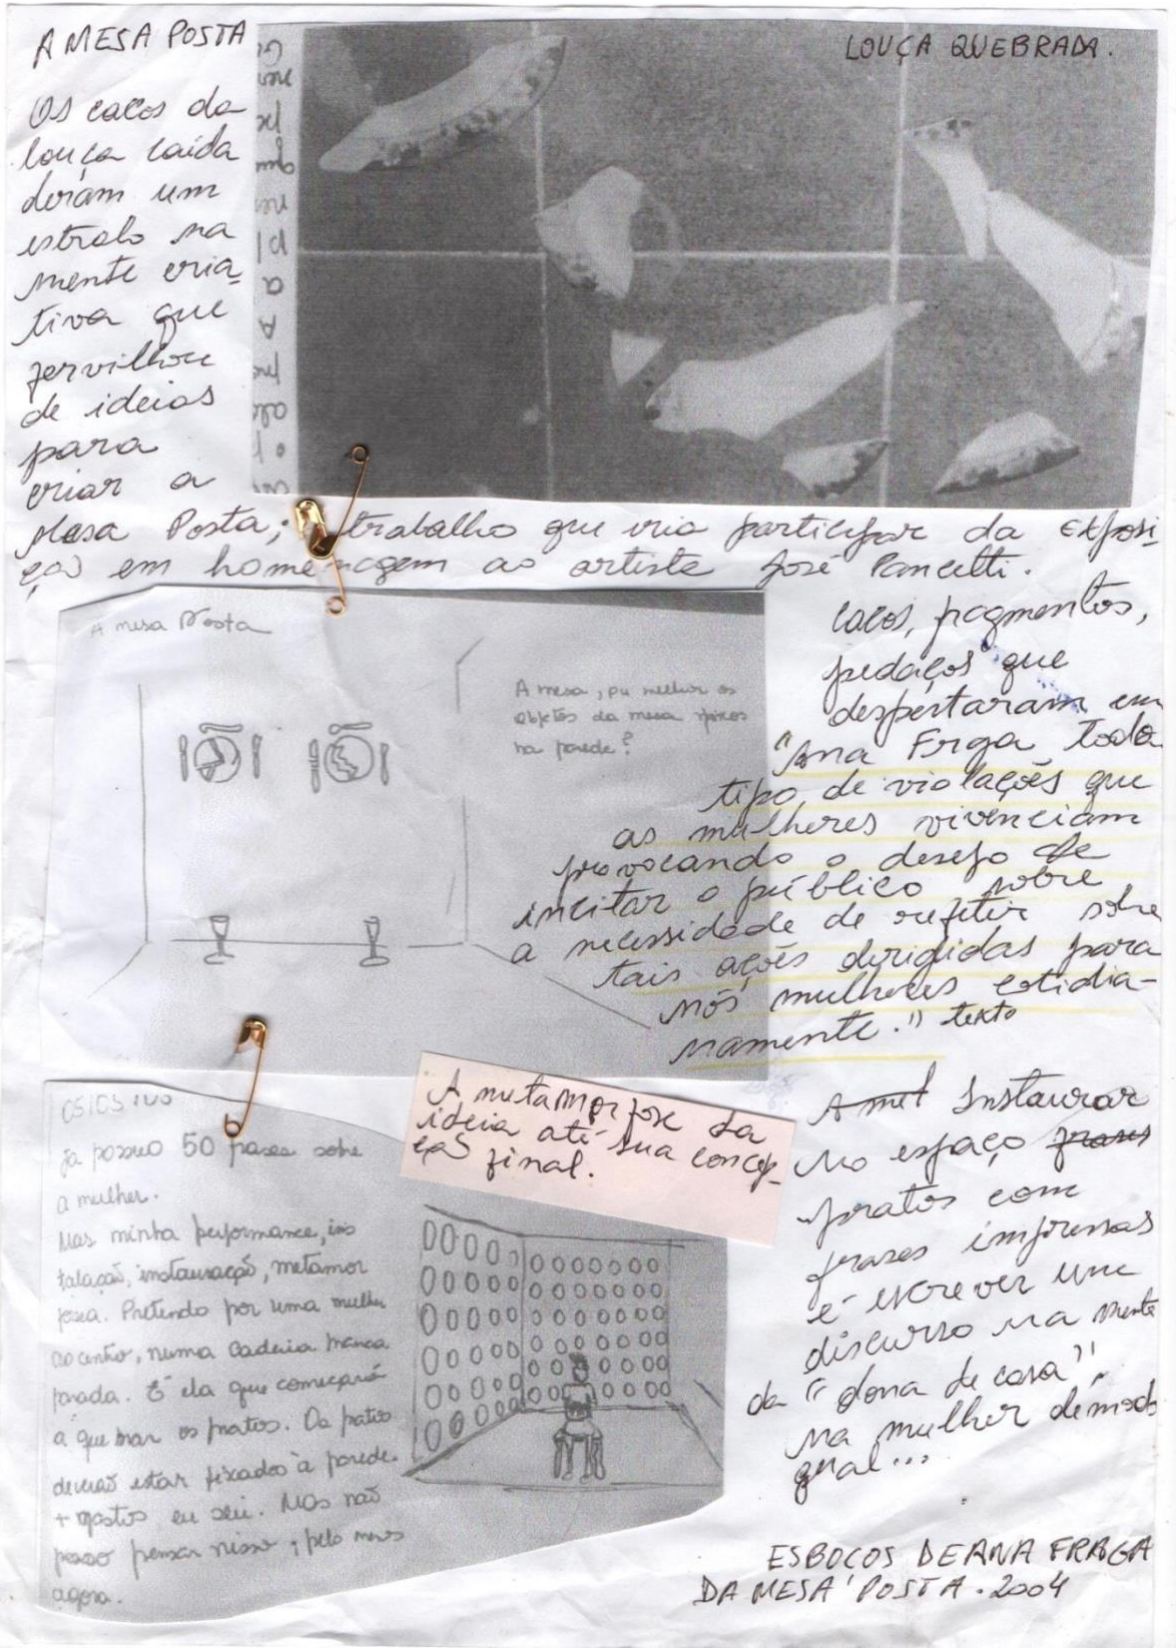 A MESA POSTA
LOUÇA QUEBRADA.
Os cacos da
louça caída
deram um
estralo na
mente cria-
tiva que
fervilhou
de ideias
para
criar a
Mesa Posta; trabalho que iria participar da Exposi-
ção em homenagem ao artista José Pancetti.
A mesa Posta
A mesa, ou melhor os
objetos da mesa fixos
na parede?
Cacos, fragmentos,
pedaços que
despertaram em
"Ana Frga todo
tipo de violações que
as mulheres vivenciam
provocando o desejo de
incitar o público sobre
a necessidade de refletir sobre
tais ações dirigidas para
nós mulheres cotidia-
namente." texto
A metamorfose da
ideia até sua concep-
ção final.
Já possuo 50 frases sobre
a mulher.
Mas minha performance, ins
talação, instauração, metamor
fosea. Pretendo por uma mulher
ao centro, numa cadeira branca
parada. É ela que começará
a quebrar os pratos. Os pratos
deverão estar fixados à parede.
+ gastos eu sei. Mas não
posso pensar nisso; pelo menos
agora.
A met Instaurar
No espaço frases
pratos com
frases impressas
é escrever um
discurso na mente
da "dona de casa",
na mulher de modo
geral...
ESBOÇOS DE ANA FRAGA
DA MESA POSTA. 2004